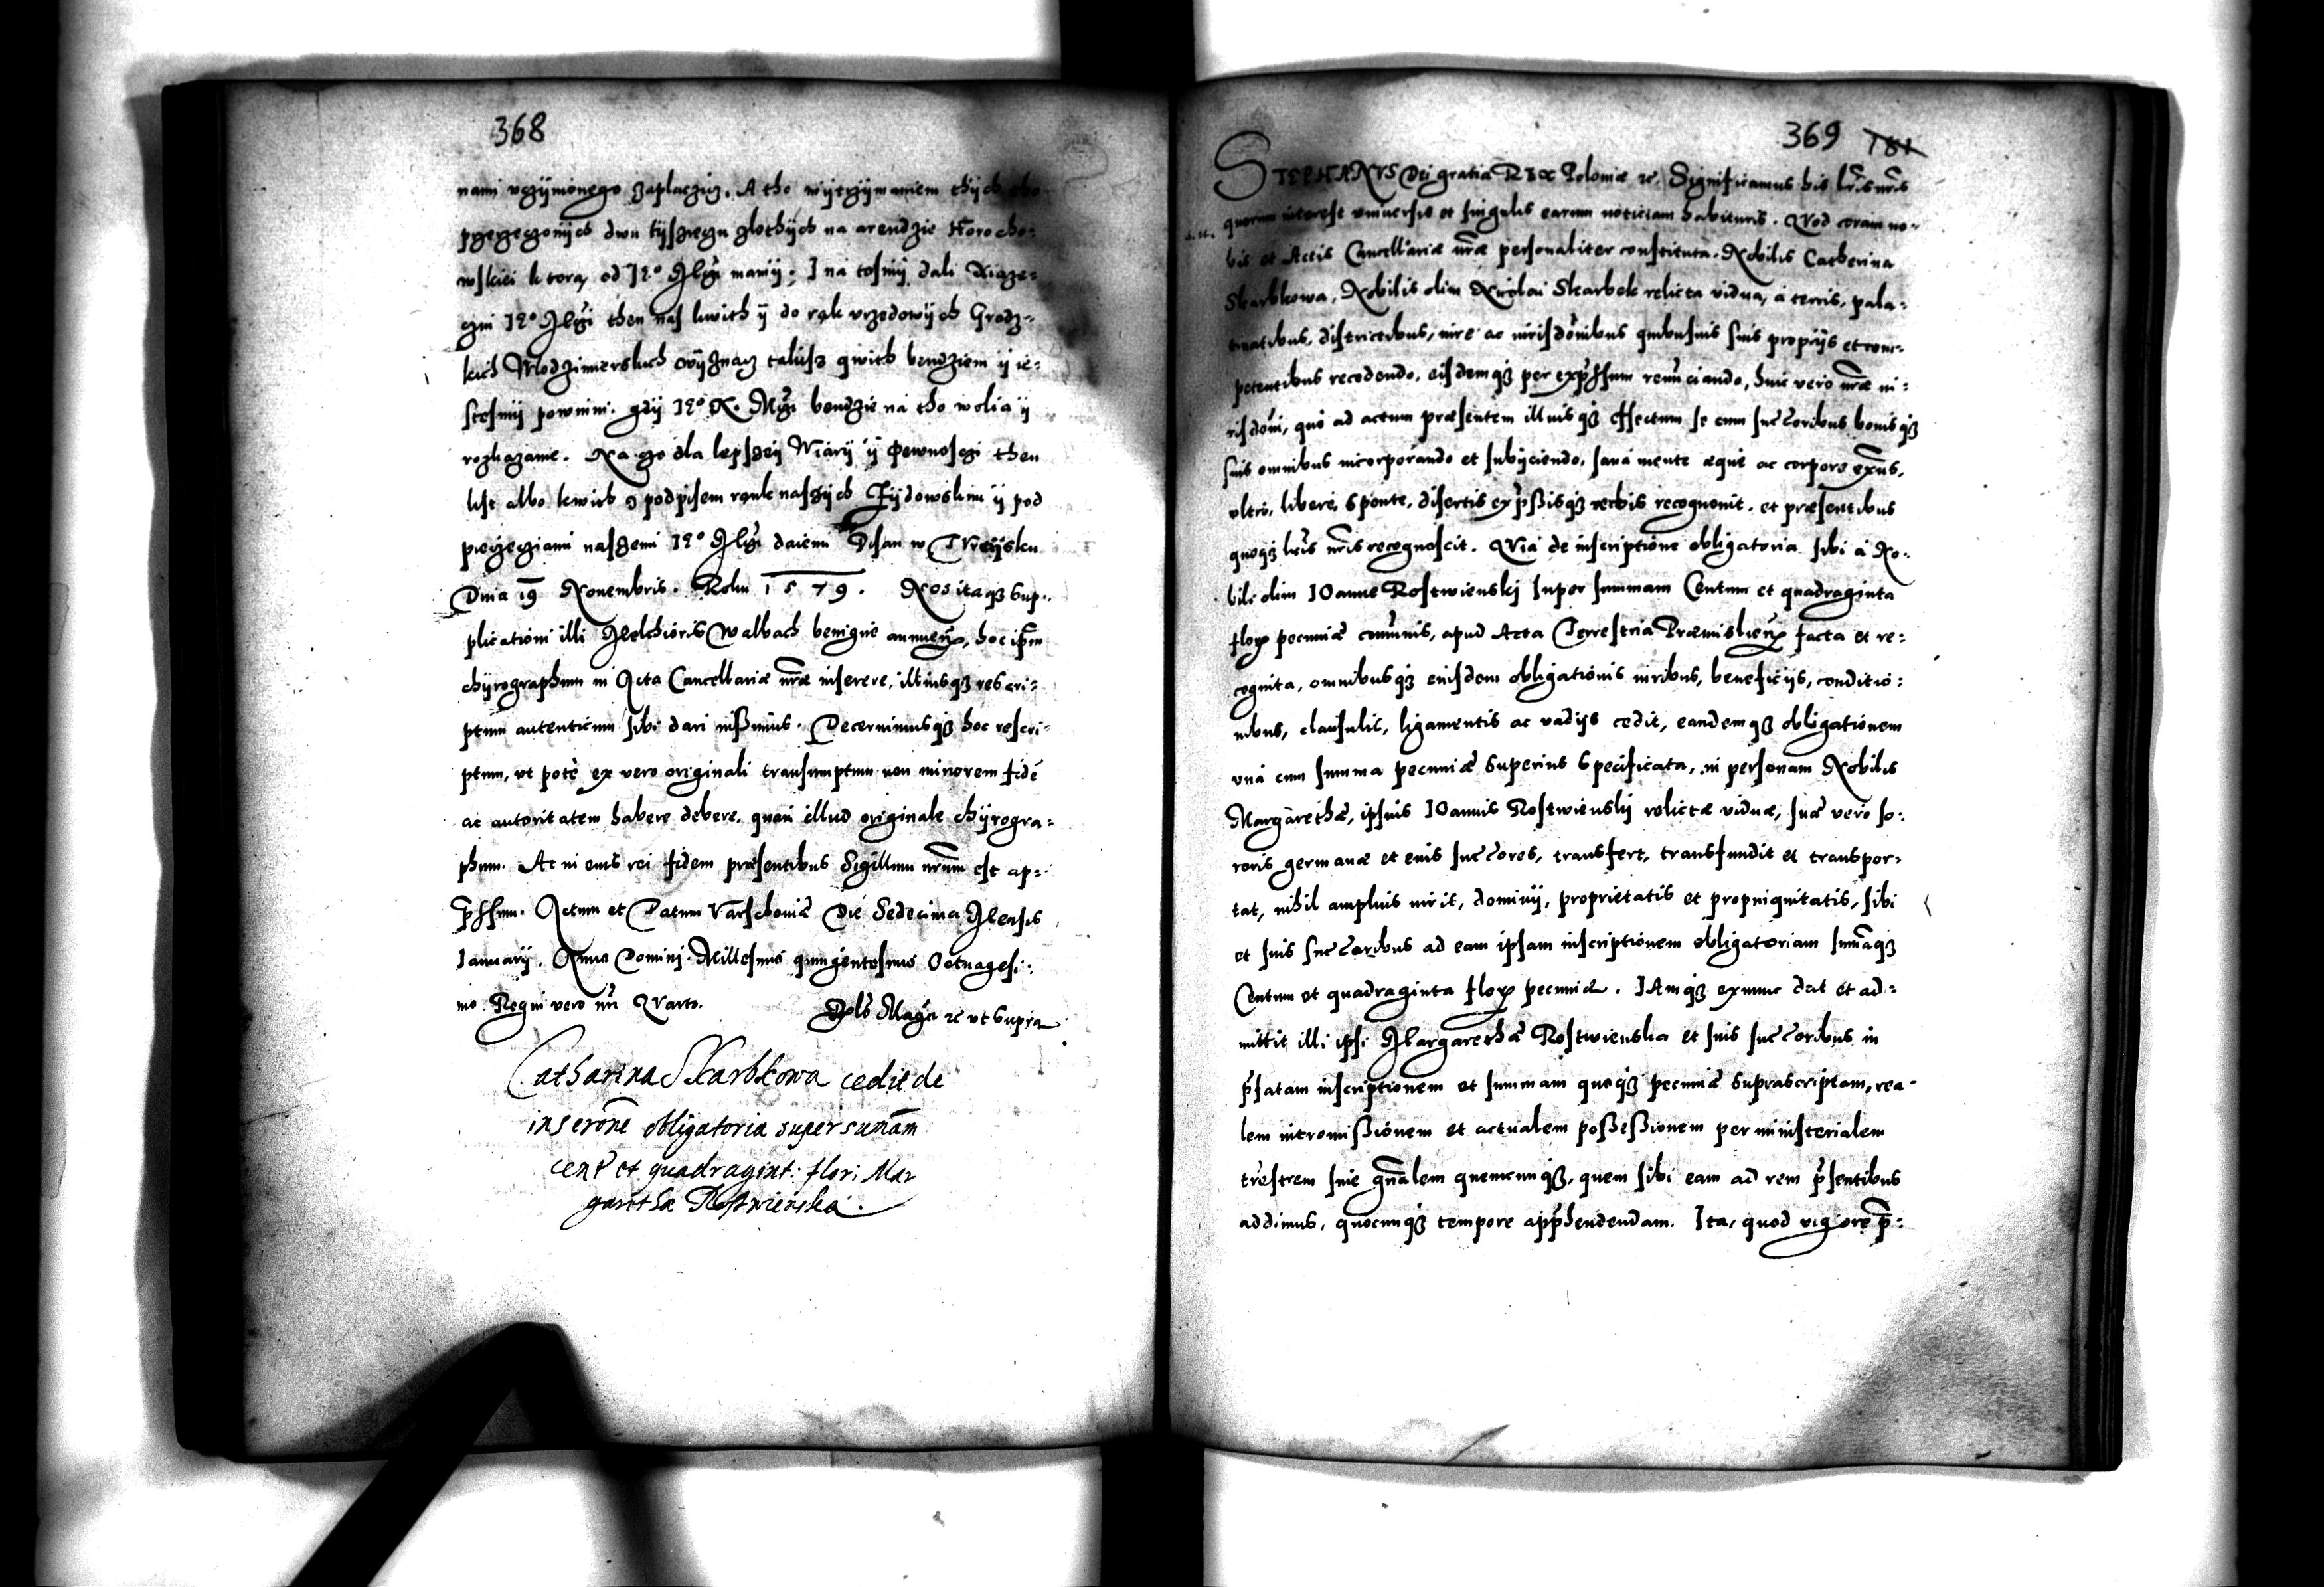 368
nami uczÿmionego zaplaczicz. A tho wÿtrzÿmaniem thÿch tho
pzezeczonÿch dwu tÿszięczu zlothÿch na arendzie Horocho-
wskiei ktorą od Je° Mczi mamÿ. J na tosmÿ dali Xiąze-
czu Je° Mczi then nas kwith ÿ do rąk urzedowÿch Grodz-
kich Wlodzimerskich wÿznacz takiisz qwith bendziem ÿ ie-
stesmÿ powinni. gdÿ Je° X. Mczi bendzie na tho wolia ÿ
rozkazanie. Na czo dla lepszeÿ Wiarÿ ÿ Pewnosczi then
list albo kwith s podpisem rąk naszÿch Zÿdowskim ÿ pod
pieczecziami naszemi Je° Mczi daiemi Pisan w Thrÿsku
Dnia 19 Nouembris. Roku 1579. Nos itaq3 sup-
plicationi illi Melchioris Walbach benigne annuen, hoc ipm
chÿrographum in Acta Cancellariæ nræ inserere, illiusq3 rescri-
ptum autenticum sibi dari iussimus. Decernimusq3 hoc rescri-
ptum, ut pote ex vero originali transumptum non minorem fide
ac autoritatem habere debere, quam illud originale chÿrogra-
phum. Ac in eius rei fidem præsentibus Sigillum nrum est ap-
pssum. Actum et Datum Varschouiæ Die Sedecima Mensis
Ianuarÿ. Anno Domini Millesimo quingentesimo Octuagesi-
mo Regni vero nri Quarto. Dols Magci &c ut supra
Catharina Skarbkowa cedit de
inscrone obligatoria super sumam
cent et quadragint: flor: Mar
garetha Rostwieńska.
369 181
STEPHANVS Dei gratia REX Poloniæ &c. Significamus his lris nris
quorum interest vniuersis et singulis earum noticiam habituris. Quod coram no-
bis et Actis Cancellariæ nræ personaliter constituta. Nobilis Catherina
Skarbkowa, Nobilis olim Nicolai Skarbek relicta vidua, à terris, pala-
tinatibus, districtibus, iure ac iurisdonibus quibusuis suis proprÿs et com-
petentibus recedendo, eisdemq3 per expssum renunciando, huic vero nræ iu-
risdoni, quo ad actum præsentem illiusq3 effectum se cum succoribus bonisq3
suis omnibus incorporando et subÿciendo, sana mente æque ac corpore exns,
vltro, libere, sponte, disertis expssisq3 verbis recognouit, et præsentibus
quoq3 lris nris recognoscit. Quia de inscriptione obligatoria sibi à No-
bili olim IOanne Rostwienski super summam Centum et quadraginta
flor pecuniæ comunis, apud Acta Terrestria Præmislien facta et re-
cognita, omnibusq3 eiusdem obligationis iuribus, beneficÿs, conditio-
nibus, clausulis, ligamentis ac vadÿs cedit, eandemq3 obligationem
vna cum summa pecuniæ superius specificata, in personam Nobilis
Margarethæ, ipsius IOannis Rostwienskÿ relictæ viduæ, suæ vero so-
roris germanæ et eius succores, transfert, transfundit et transpor-
tat, nihil amplius iuris, dominÿ, proprietatis et propinquitatis, sibi
et suis succoribus ad eam ipsam inscriptionem obligatoriam sumaq3
Centum et quadraginta flor pecuniæ. IAmq3 ex nunc dat et ad-
mittit illi ipsi Margarethæ Rostwienska et suis succoribus in
pfatam inscriptionem et summam quoq3 pecuniæ suprascriptam, rea-
lem intromissionem et actualem possessionem per ministerialem
trrestrem siue gnalem quemcunq3, quem sibi eam ad rem psentibus
addimus, quocunq3 tempore apphendendam. Ita, quod vigore p-